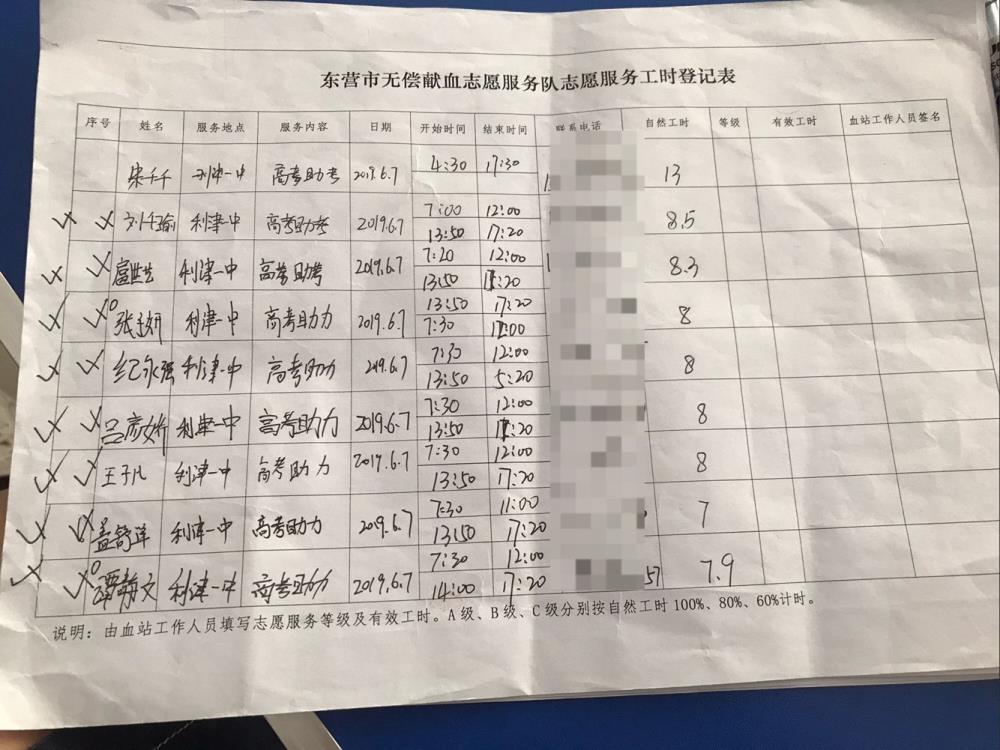 东营市无偿献血志愿服务队志愿服务工时登记表
序号 姓名 服务地点 服务内容 日期 开始时间 结束时间 联系电话 自然工时 等级 有效工时 血站工作人员签名
宋千千 利津一中 高考助考 2019.6.7 4:30 17:30 13
利津一中 高考助考 2019.6.7 7:00 12:00 8.5
13:50 17:20
利津一中 高考助考 2019.6.7 7:20 12:00 8.3
13:50 17:20
利津一中 高考助力 2019.6.7 13:50 17:20 8
7:30 12:00
纪永强 利津一中 高考助力 2019.6.7 7:30 12:00 8
13:50 5:20
吕彦娇 利津一中 高考助力 2019.6.7 7:30 12:00 8
13:50 17:20
王子凡 利津一中 高考助力 2019.6.7 7:30 12:00 8
13:50 17:20
孟舒洋 利津一中 高考助力 2019.6.7 7:30 11:00 7
13:50 17:20
谭静文 利津一中 高考助力 2019.6.7 7:30 12:00 57 7.9
14:00 17:20
说明：由血站工作人员填写志愿服务等级及有效工时。A级、B级、C级分别按自然工时100%、80%、60%计时。